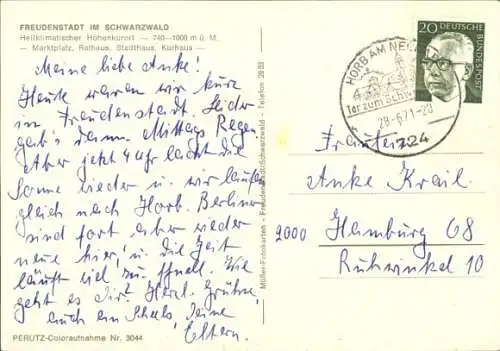 FREUDENSTADT IM SCHWARZWALD
Heilklimatischer Höhenkurort — 740—1000 m ü. M.
— Marktplatz, Rathaus, Stadthaus, Kurhaus —
Meine liebe Anke!
Heute waren wir kurz
in Freudenstadt. Leider
gab's dann Mittags Regen
Aber jetzt 4 Uhr lacht die
Sonne wieder u. wir laufen
gleich nach Horb. Berliner
sind fort aber wieder
neue hier, u. die Zeit
läuft viel zu schnell. Wie
geht es Dir? Herzl. Grüße
auch ein Deine
Eltern.
PERUTZ-Coloraufnahme Nr. 3044
Müller-Fotokarten - Freudenstadt/Schwarzwald - Telefon
HORB AM
Tor zum
28.-6.71-20
724
20 DEUTSCHE
BUNDESPOST
Fräulein
Anke Krail
2000 Hamburg 68
Ruhwinkel 10